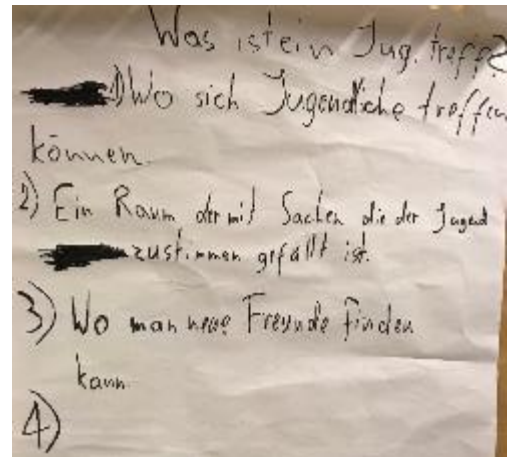 Was ist ein Jug. treff?
1) Wo sich Jugendliche treffen
können.
2) Ein Raum der mit Sachen die der Jugend
zustimmen gefällt ist.
3) Wo man neue Freunde finden
kann
4)